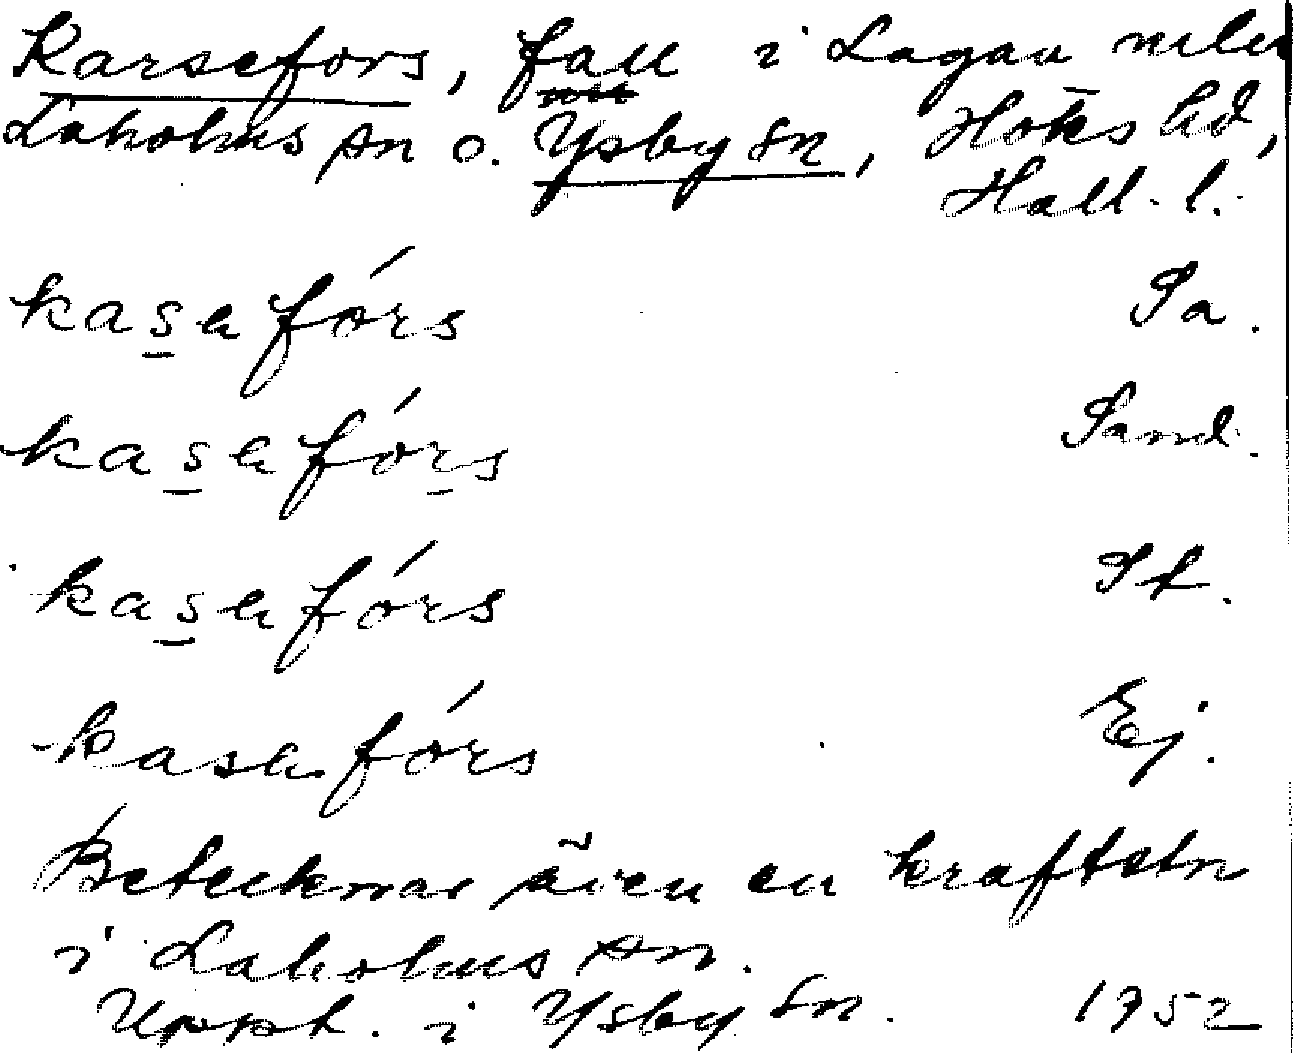 Karsefors, fall i Lagan mellan
Laholms sn o. Ysby sn, Höks hd,
Hall. l.
kasefórs Pa.
kasefórs Pand.
kasefórs Pf.
kasefórs Ej.
Betecknar även en kraftstn
i Laholms sn.
Uppt. i Ysby sn. 1952